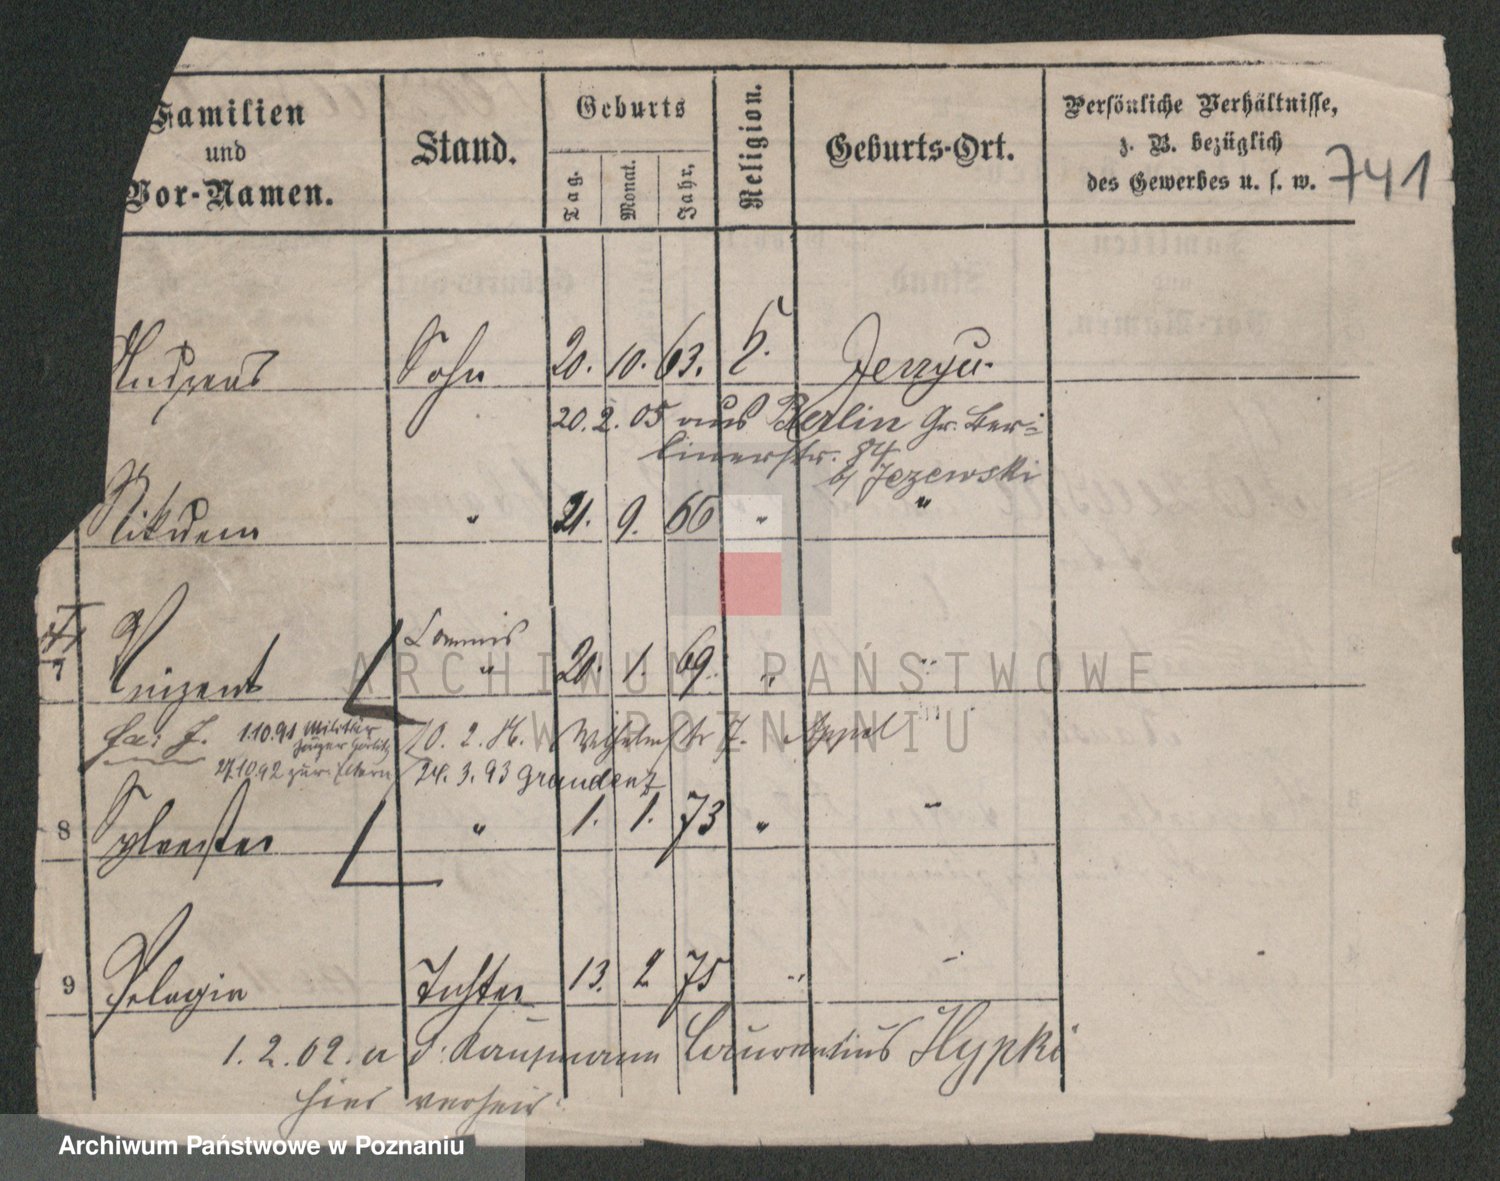 Familien
und
Vor-Namen.
Stand.
Geburts
Tag.
Monat.
Jahr.
Religion.
Geburts-Ort.
Persönliche Verhältnisse,
z. B. bezüglich
des Gewerbes u. s. w.
741
Andreas Sohn 20. 10. 63. Jerzyce.
20.2.05 aus Berlin Gr. Ber-
linerstr. 84
b/ Jezewski
Nikodem " 21. 9. 66 " "
Commis
7 Vinzent " 20. 1. 69. " "
1.10.91 Militär
Jäger Görlitz
10. 2. 86. Wilhelmstr 7. Appel
27.10.92 zur. Eltern 24. 3. 93 Graudenz
8 Sylvester " 1. 1. 73 " "
9 Pelagia Tochter 13. 2 75 " "
1. 2. 02. a d. Kaufmann Laurentius Hypki
hier verheir.
ARCHIWUM PAŃSTWOWE
W POZNANIU
Archiwum Państwowe w Poznaniu